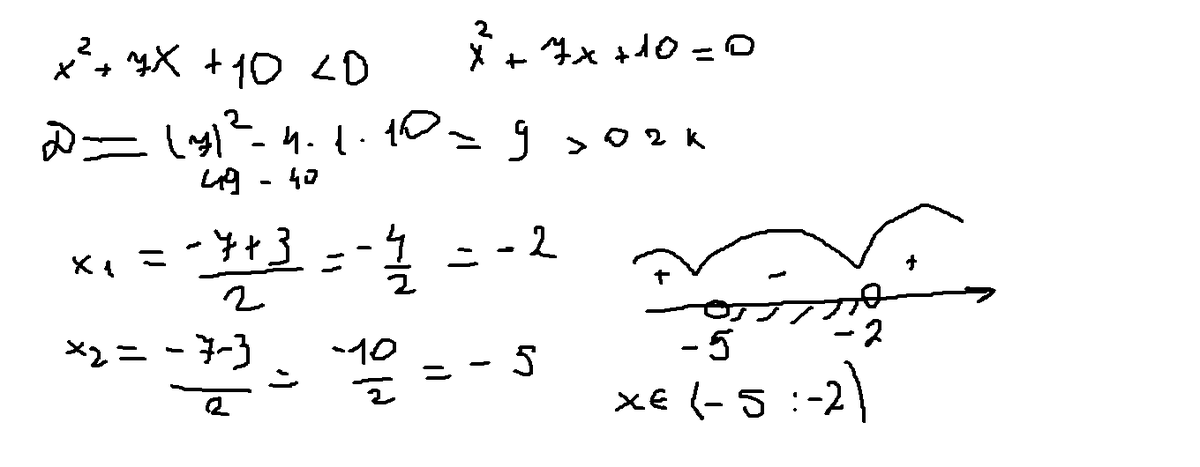 x² + 7x + 10 < 0
x² + 7x + 10 = 0
D = (7)² - 4 · 1 · 10 = 9 > 0 2 к
49 - 40
x₁ = (-7+3)/2 = -4/2 = -2
x₂ = (-7-3)/2 = -10/2 = -5
+ - +
-5 -2
x ∈ (-5 : -2)